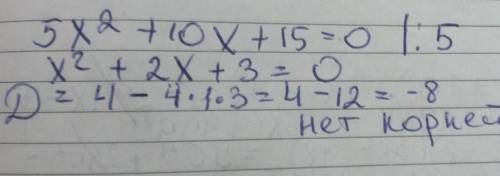 5x² + 10x + 15 = 0 |:5
x² + 2x + 3 = 0
D = 4 - 4·1·3 = 4 - 12 = -8
нет корней